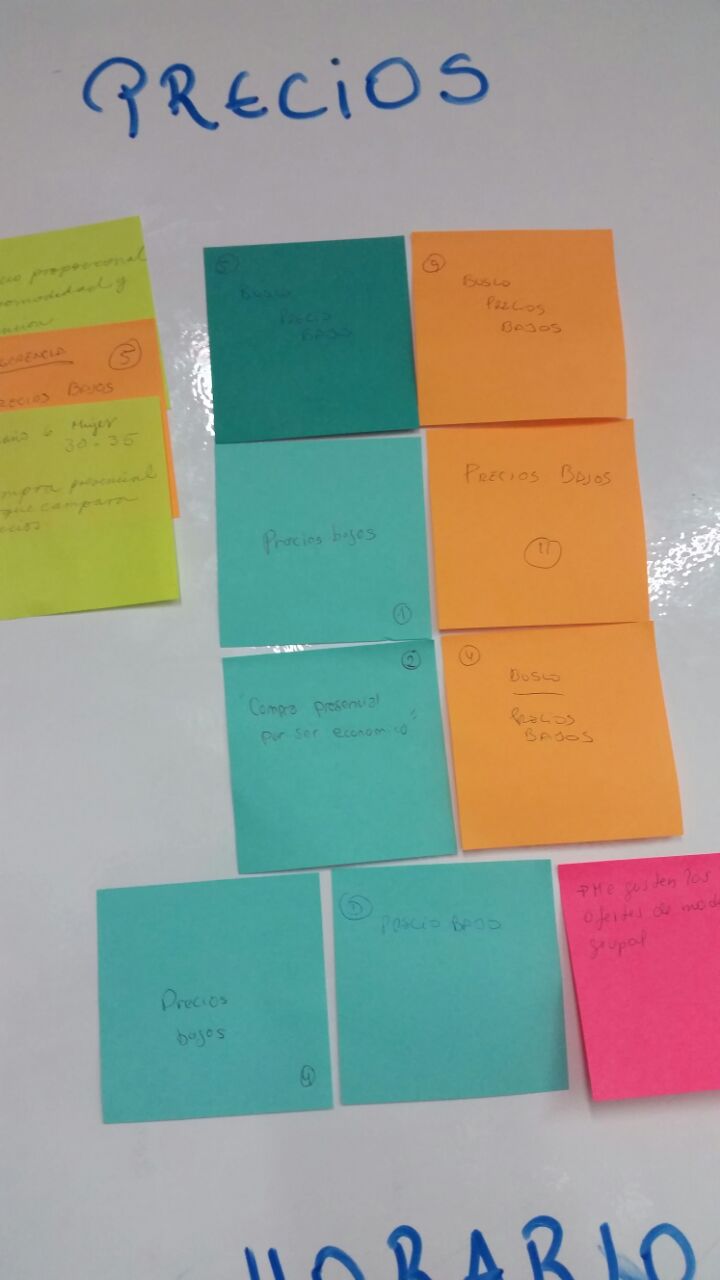 PRECIOS
proporcional
comodidad y
5
PRECIOS BAJOS
Mujer
30-35
compra presencial
que compara
5
BUSCO
PRECIO
BAJO
9
BUSCO
PRECIOS
BAJOS
Precios bajos
1
PRECIOS BAJOS
11
2
"Compra presencial
por ser economico"
4
BUSCO
PRECIOS
BAJOS
Precios
bajos
PRECIO BAJO
Me gustan las
ofertas de
grupal
HORARIO